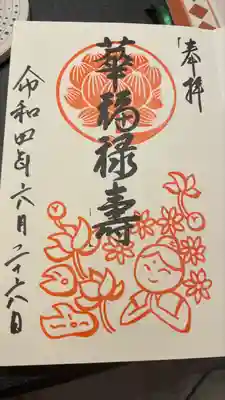 奉拝
華福禄壽
令和四年六月二十六日